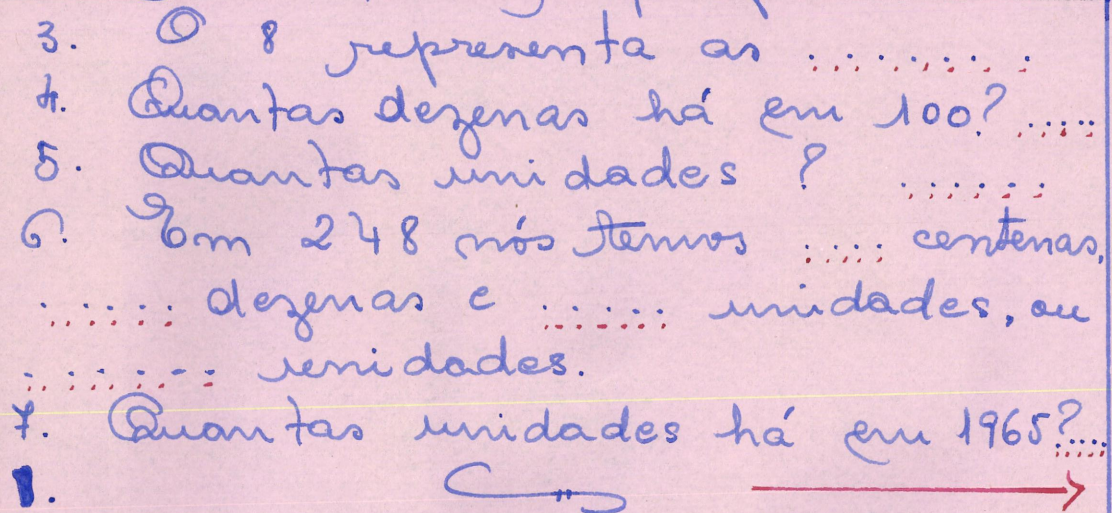 3. O 8 representa as ........
4. Quantas dezenas há em 100? .....
5. Quantas unidades ? ......
6. Em 248 nós temos .... centenas,
...... dezenas e ...... unidades, ou
........ unidades.
7. Quantas unidades há em 1965? ....